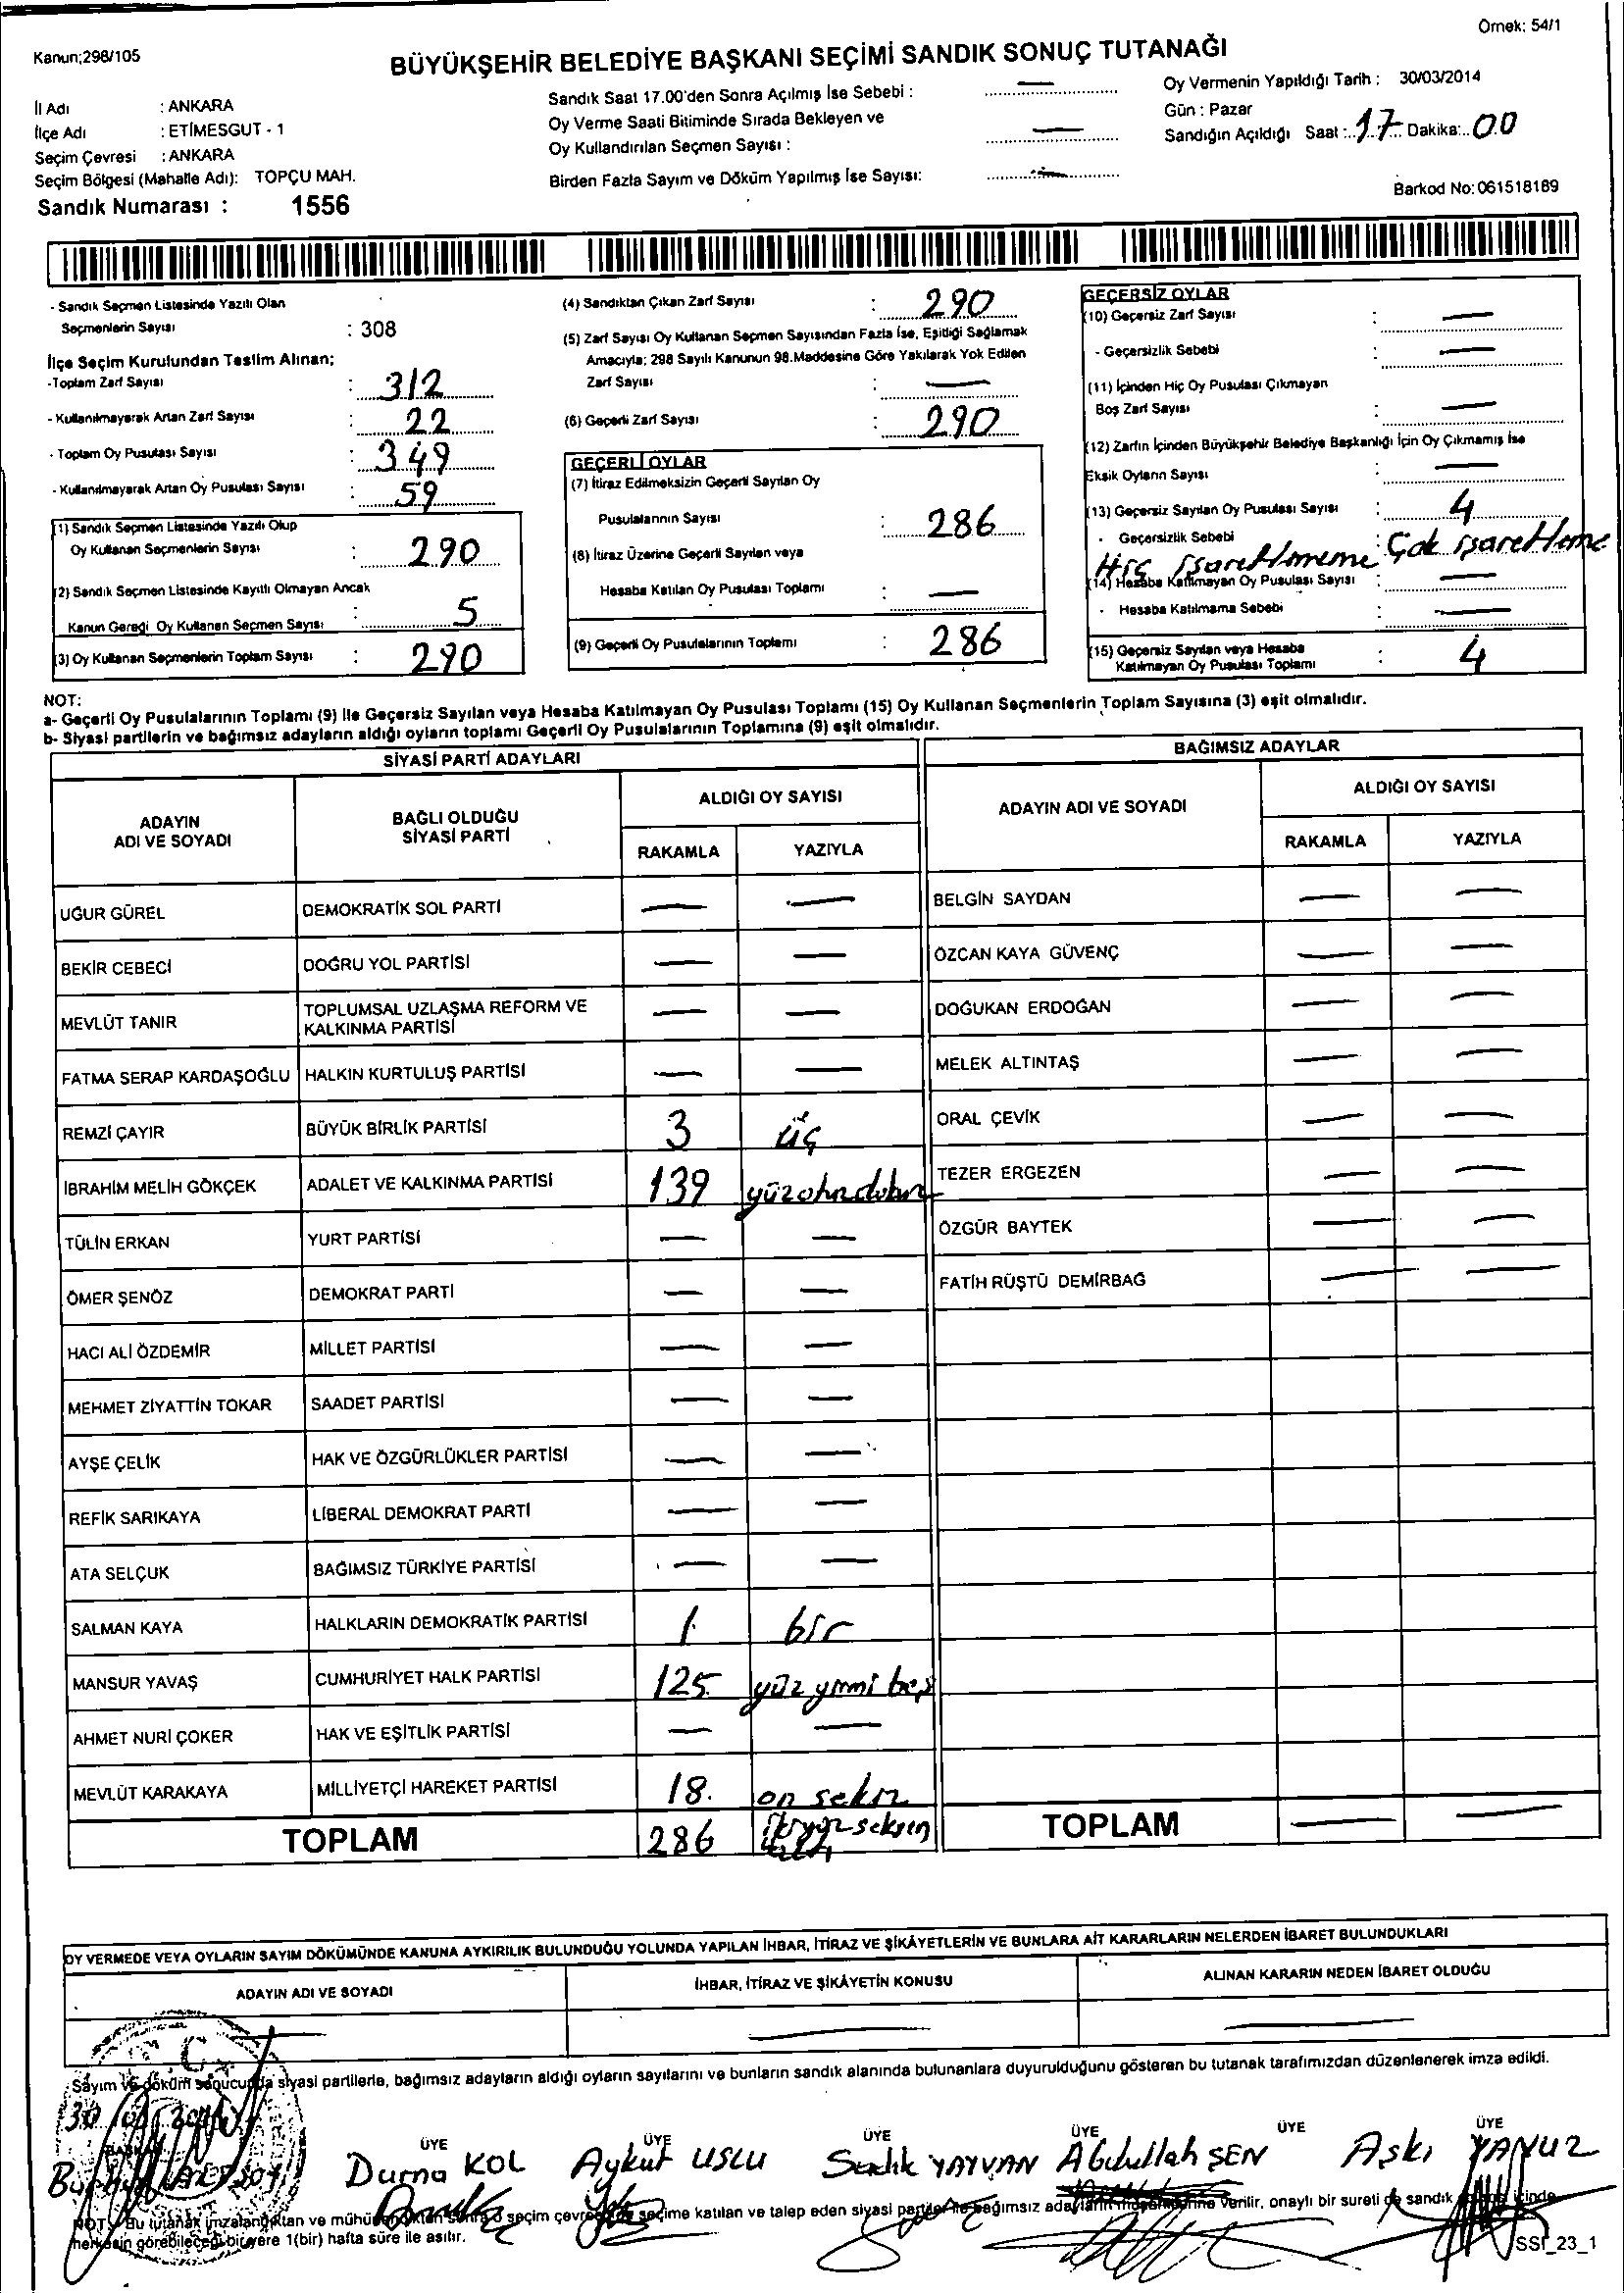 Örnek: 54/1
Kanun;298/105
BÜYÜKŞEHİR BELEDİYE BAŞKANI SEÇİMİ SANDIK SONUÇ TUTANAĞI
İl Adı : ANKARA
İlçe Adı : ETİMESGUT - 1
Seçim Çevresi : ANKARA
Seçim Bölgesi (Mahalle Adı): TOPÇU MAH.
Sandık Numarası : 1556
Sandık Saat 17.00'den Sonra Açılmış İse Sebebi : —
Oy Verme Saati Bitiminde Sırada Bekleyen ve
Oy Kullandırılan Seçmen Sayısı : —
Birden Fazla Sayım ve Döküm Yapılmış İse Sayısı: —
Oy Vermenin Yapıldığı Tarih : 30/03/2014
Gün : Pazar
Sandığın Açıldığı Saat : 17 Dakika: 00
Barkod No: 061518189
- Sandık Seçmen Listesinde Yazılı Olan
Seçmenlerin Sayısı : 308
İlçe Seçim Kurulundan Teslim Alınan;
-Toplam Zarf Sayısı : 312
- Kullanılmayarak Artan Zarf Sayısı : 22
- Toplam Oy Pusulası Sayısı : 349
- Kullanılmayarak Artan Oy Pusulası Sayısı : 59
(1) Sandık Seçmen Listesinde Yazılı Olup
Oy Kullanan Seçmenlerin Sayısı : 290
(2) Sandık Seçmen Listesinde Kayıtlı Olmayan Ancak
Kanun Gereği Oy Kullanan Seçmen Sayısı : 5
(3) Oy Kullanan Seçmenlerin Toplam Sayısı : 290
(4) Sandıktan Çıkan Zarf Sayısı : 290
(5) Zarf Sayısı Oy Kullanan Seçmen Sayısından Fazla İse, Eşitliği Sağlamak
Amacıyla; 298 Sayılı Kanunun 98.Maddesine Göre Yakılarak Yok Edilen
Zarf Sayısı : —
(6) Geçerli Zarf Sayısı : 290
GEÇERLİ OYLAR
(7) İtiraz Edilmeksizin Geçerli Sayılan Oy
Pusulalarının Sayısı : 286
(8) İtiraz Üzerine Geçerli Sayılan veya
Hesaba Katılan Oy Pusulası Toplamı : —
(9) Geçerli Oy Pusulalarının Toplamı : 286
GEÇERSİZ OYLAR
(10) Geçersiz Zarf Sayısı : —
- Geçersizlik Sebebi : —
(11) İçinden Hiç Oy Pusulası Çıkmayan
Boş Zarf Sayısı : —
(12) Zarfın İçinden Büyükşehir Belediye Başkanlığı İçin Oy Çıkmamış İse
Eksik Oyların Sayısı : —
(13) Geçersiz Sayılan Oy Pusulası Sayısı : 4
- Geçersizlik Sebebi : Hiç işaretlememe Çok işaretleme
(14) Hesaba Katılmayan Oy Pusulası Sayısı : —
- Hesaba Katılmama Sebebi : —
(15) Geçersiz Sayılan veya Hesaba
Katılmayan Oy Pusulası Toplamı : 4
NOT:
a- Geçerli Oy Pusulalarının Toplamı (9) İle Geçersiz Sayılan veya Hesaba Katılmayan Oy Pusulası Toplamı (15) Oy Kullanan Seçmenlerin Toplam Sayısına (3) eşit olmalıdır.
b- Siyasi partilerin ve bağımsız adayların aldığı oyların toplamı Geçerli Oy Pusulalarının Toplamına (9) eşit olmalıdır.
SİYASİ PARTİ ADAYLARI
ADAYIN ADI VE SOYADI
BAĞLI OLDUĞU SİYASİ PARTİ
ALDIĞI OY SAYISI
RAKAMLA YAZIYLA
UĞUR GÜREL DEMOKRATİK SOL PARTİ — —
BEKİR CEBECİ DOĞRU YOL PARTİSİ — —
MEVLÜT TANIR TOPLUMSAL UZLAŞMA REFORM VE KALKINMA PARTİSİ — —
FATMA SERAP KARDAŞOĞLU HALKIN KURTULUŞ PARTİSİ — —
REMZİ ÇAYIR BÜYÜK BİRLİK PARTİSİ 3 üç
İBRAHİM MELİH GÖKÇEK ADALET VE KALKINMA PARTİSİ 139 yüzotuzdokuz
TÜLİN ERKAN YURT PARTİSİ — —
ÖMER ŞENÖZ DEMOKRAT PARTİ — —
HACI ALİ ÖZDEMİR MİLLET PARTİSİ — —
MEHMET ZİYATTİN TOKAR SAADET PARTİSİ — —
AYŞE ÇELİK HAK VE ÖZGÜRLÜKLER PARTİSİ — —
REFİK SARIKAYA LİBERAL DEMOKRAT PARTİ — —
ATA SELÇUK BAĞIMSIZ TÜRKİYE PARTİSİ — —
SALMAN KAYA HALKLARIN DEMOKRATİK PARTİSİ 1 bir
MANSUR YAVAŞ CUMHURİYET HALK PARTİSİ 125 yüz yirmi beş
AHMET NURİ ÇOKER HAK VE EŞİTLİK PARTİSİ — —
MEVLÜT KARAKAYA MİLLİYETÇİ HAREKET PARTİSİ 18. on sekiz
TOPLAM 286 ikiyüz seksen altı
BAĞIMSIZ ADAYLAR
ADAYIN ADI VE SOYADI
ALDIĞI OY SAYISI
RAKAMLA YAZIYLA
BELGİN SAYDAN — —
ÖZCAN KAYA GÜVENÇ — —
DOĞUKAN ERDOĞAN — —
MELEK ALTINTAŞ — —
ORAL ÇEVİK — —
TEZER ERGEZEN — —
ÖZGÜR BAYTEK — —
FATİH RÜŞTÜ DEMİRBAĞ — —
TOPLAM — —
OY VERMEDE VEYA OYLARIN SAYIM DÖKÜMÜNDE KANUNA AYKIRILIK BULUNDUĞU YOLUNDA YAPILAN İHBAR, İTİRAZ VE ŞİKÂYETLERİN VE BUNLARA AİT KARARLARIN NELERDEN İBARET BULUNDUKLARI
ADAYIN ADI VE SOYADI İHBAR, İTİRAZ VE ŞİKÂYETİN KONUSU ALINAN KARARIN NEDEN İBARET OLDUĞU
— — —
Sayım ve döküm sonucunda siyasi partilerle, bağımsız adayların aldığı oyların sayılarını ve bunların sandık alanında bulunanlara duyurulduğunu gösteren bu tutanak tarafımızdan düzenlenerek imza edildi.
BAŞKAN ÜYE ÜYE ÜYE ÜYE ÜYE ÜYE
Durna KOL Aykut USLU Sadık YAYVAN Abdullah ŞEN Aşkı YANUZ
NOT: Bu tutanak imzalandıktan ve mühürlendikten sonra o seçim çevresinde seçime katılan ve talep eden siyasi partiler ile bağımsız adayların müşahitlerine verilir, onaylı bir sureti de sandık içinde
herkesin görebileceği bir yere 1(bir) hafta süre ile asılır.
SSI_23_1